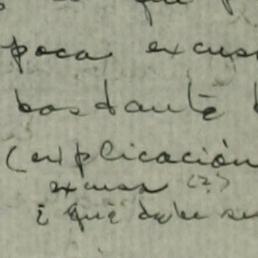 que p
poca excus
bastante
(explicación
excusa (?)
¿qué debe se